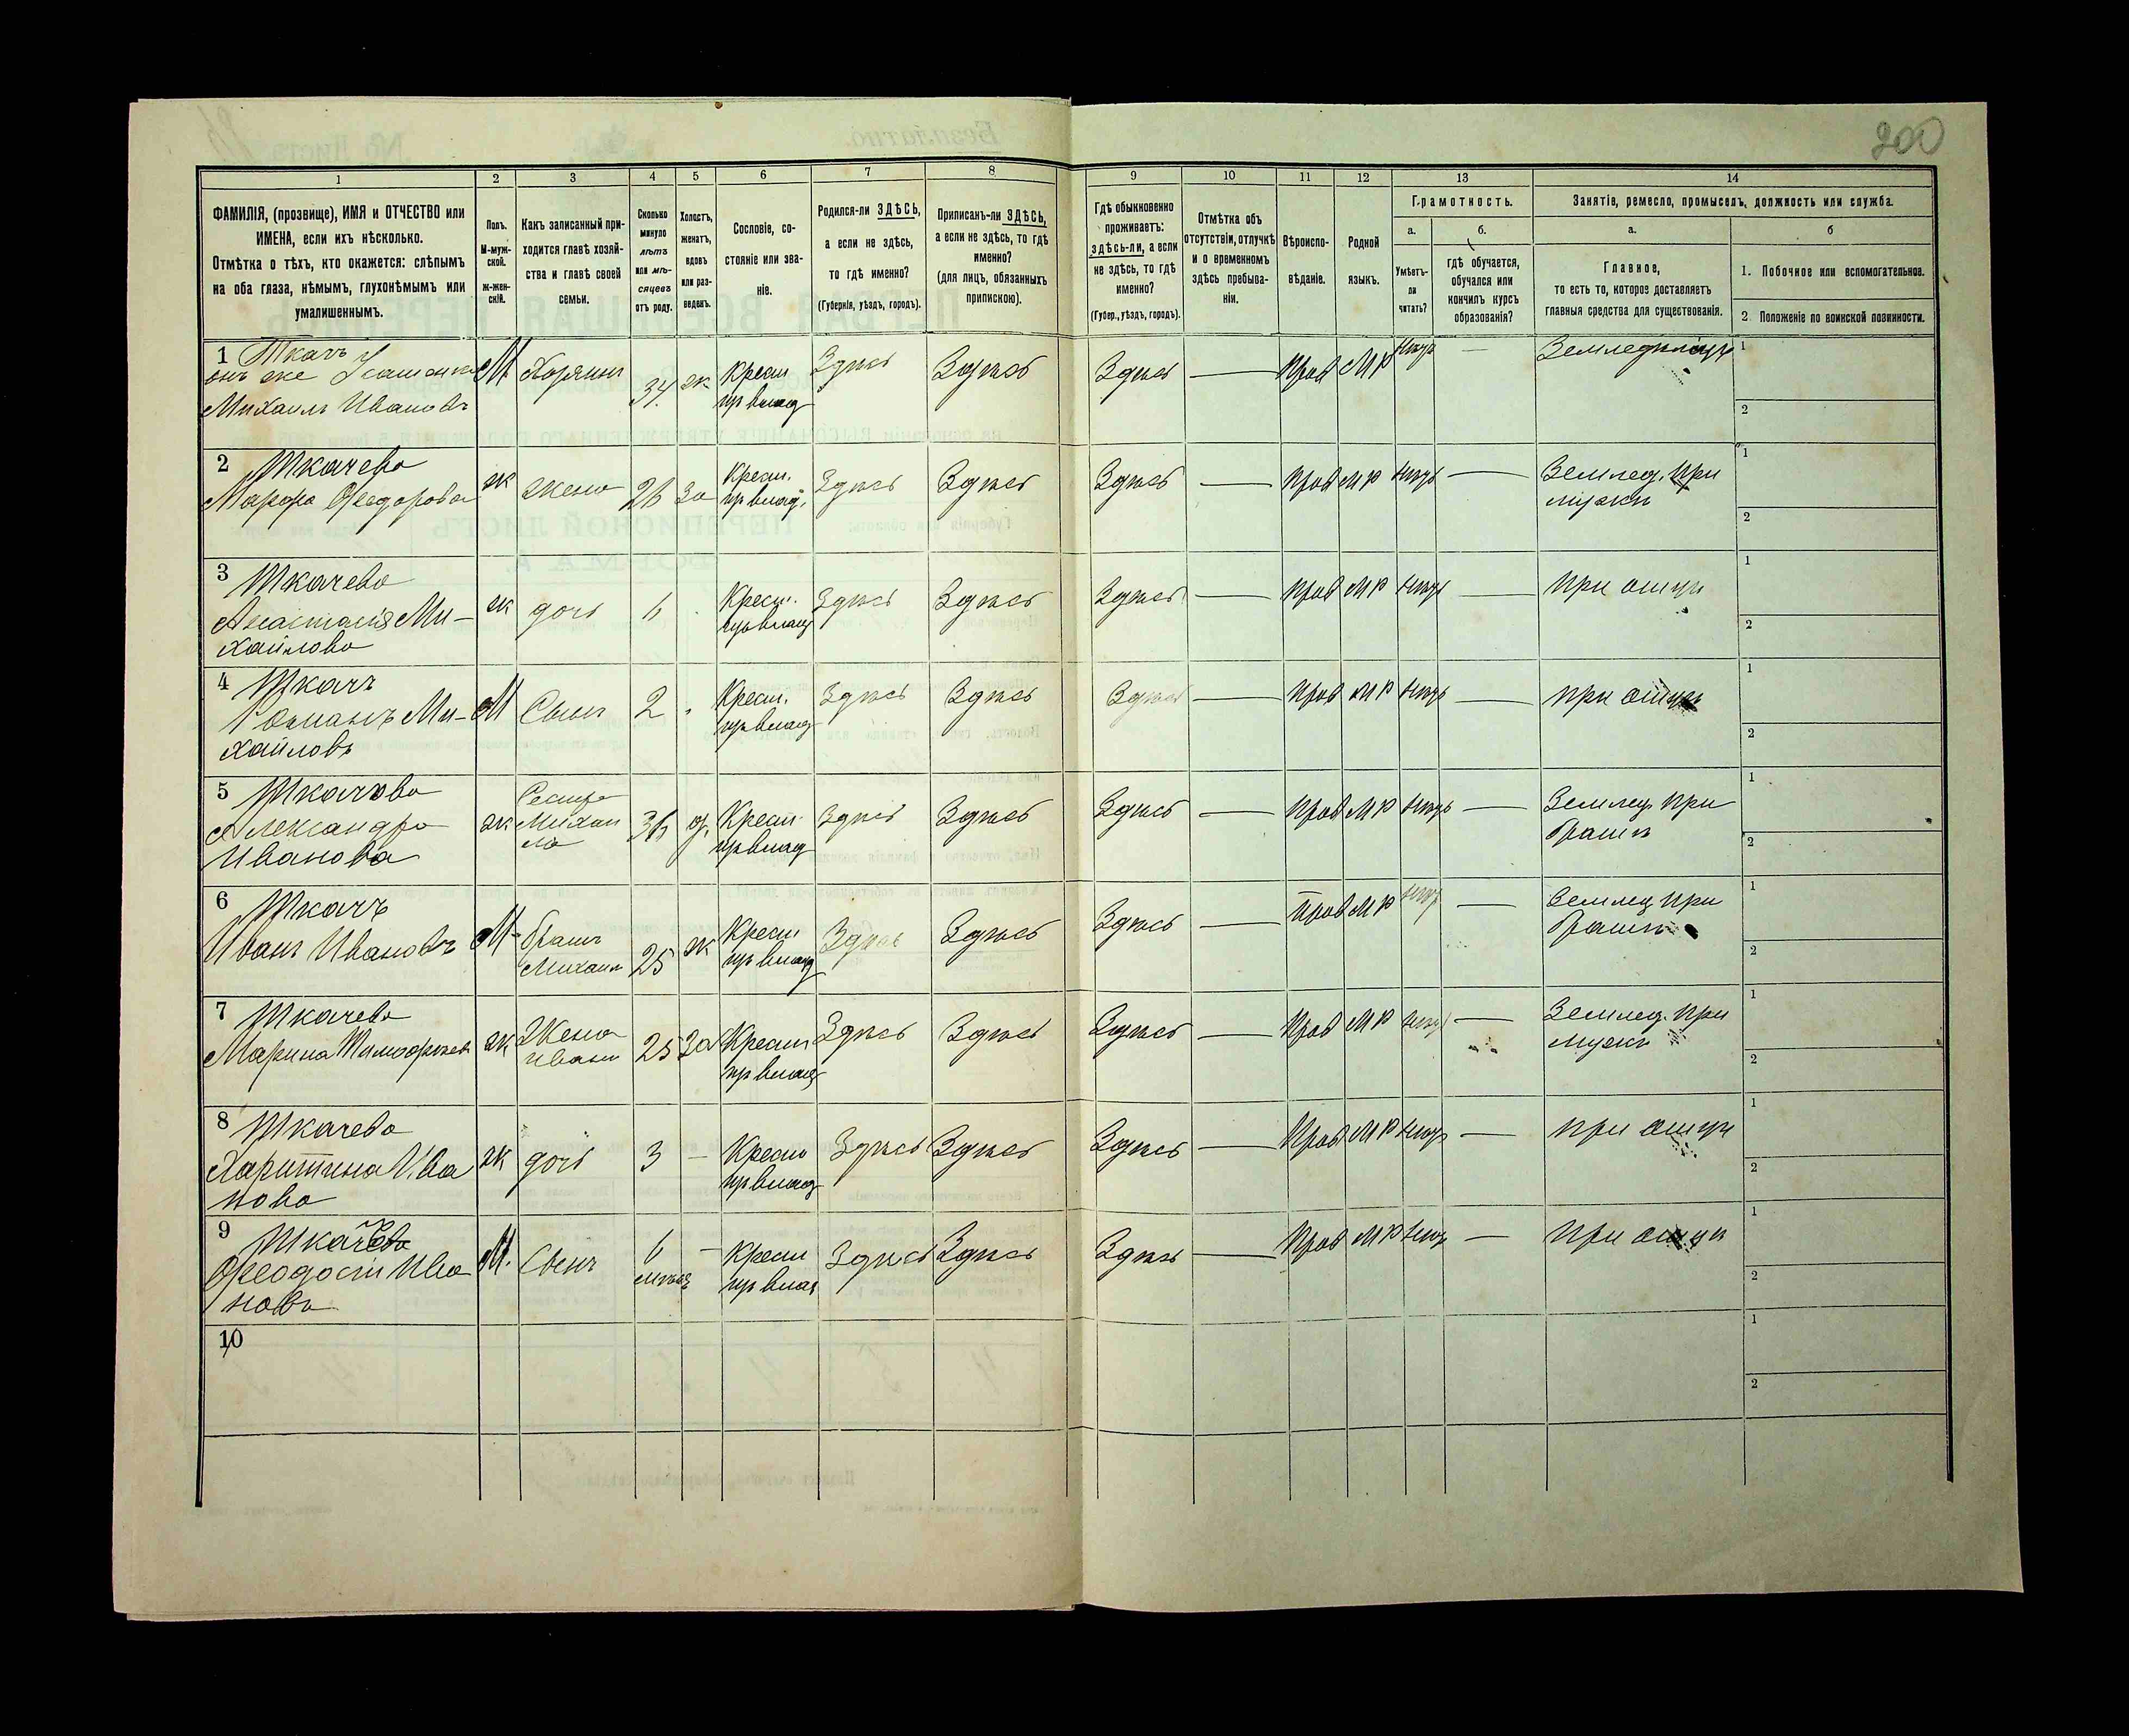 200
1 2 3 4 5 6 7 8 9 10 11 12 13 14
ФАМИЛІЯ, (прозвище), ИМЯ и ОТЧЕСТВО или
ИМЕНА, если ихъ нѣсколько.
Отмѣтка о тѣхъ, кто окажется: слѣпымъ
на оба глаза, нѣмымъ, глухонѣмымъ или
умалишеннымъ.
Полъ.
М-муж-
ской.
ж-жен-
скій.
Какъ записанный при-
ходится главѣ хозяй-
ства и главѣ своей
семьи.
Сколько
минуло
лѣтъ
или мѣ-
сяцевъ
отъ роду.
Холостъ,
женатъ,
вдовъ
или раз-
веденъ.
Сословіе, со-
стояніе или зва-
ніе.
Родился-ли ЗДѢСЬ,
а если не здѣсь,
то гдѣ именно?
(Губернія, уѣздъ, городъ).
Приписанъ-ли ЗДѢСЬ,
а если не здѣсь, то гдѣ
именно?
(для лицъ, обязанныхъ
припискою).
Гдѣ обыкновенно
проживаетъ:
здѣсь-ли, а если
не здѣсь, то гдѣ
именно?
(Губер., уѣздъ, городъ).
Отмѣтка объ
отсутствіи, отлучкѣ
и о временномъ
здѣсь пребыва-
ніи.
Вѣроиспо-
вѣданіе.
Родной
языкъ.
Грамотность.
а.
Умѣетъ-
ли
читать?
б.
гдѣ обучается,
обучался или
кончилъ курсъ
образованія?
Занятіе, ремесло, промыселъ, должность или служба.
а.
Главное,
то есть то, которое доставляетъ
главныя средства для существованія.
б
1. Побочное или вспомогательное.
2 Положеніе по воинской повинности.
1 Ткачъ
онъ же
Михаилъ Ивановъ
М Хозяинъ 34 ж Крест
пр влад
Здѣсь Здѣсь Здѣсь — Прав МР нѣтъ — Земледѣлецъ
1
2
2 Ткачева
Марфа Феодорова
ж жена 26 за Крест.
пр влад.
Здѣсь Здѣсь Здѣсь — Прав МР нѣтъ — Землед. при
мужѣ
1
2
3 Ткачева
Анастасія Ми-
хайлова
ж дочь 6 Крест.
пр влад
Здѣсь Здѣсь Здѣсь — Прав МР нѣтъ — при отцѣ
1
2
4 Ткачъ
Романъ Ми-
хайловъ
М Сынъ 2 Крест.
пр влад
Здѣсь Здѣсь Здѣсь — Прав МР нѣтъ — при отцѣ
1
2
5 Ткачова
Александра
Иванова
ж Сестра
Михаи
ла
36 д. Крест
пр влад
Здѣсь Здѣсь Здѣсь — Прав МР нѣтъ — Землед. при
братѣ
1
2
6 Ткачъ
Иванъ Ивановъ
М братъ
Михаил
25 ж Крест
пр влад
Здѣсь Здѣсь Здѣсь — Прав МР нѣтъ — Землед при
братѣ
1
2
7 Ткачева
Марина Тимофеев
ж Жена
Ивана
25 за Крест
пр влад
Здѣсь Здѣсь Здѣсь — Прав МР нѣтъ — Землед. при
мужѣ
1
2
8 Ткачева
Харитина Ива
нова
ж дочь 3 — Крест
пр влад
Здѣсь Здѣсь Здѣсь — Прав МР нѣтъ — при отцѣ
1
2
9 Ткачъ
Феодосій Ива
новъ
М. Сынъ 6
мѣсяц
— Крест
пр влад
Здѣсь Здѣсь Здѣсь — Прав МР нѣтъ — при отцѣ
1
2
10
1
2